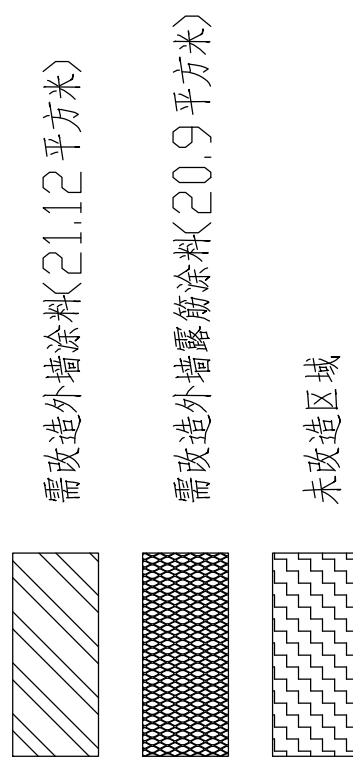 需改造外墙涂料(21.12平方米)
需改造外墙露筋涂料(20.9平方米)
未改造区域